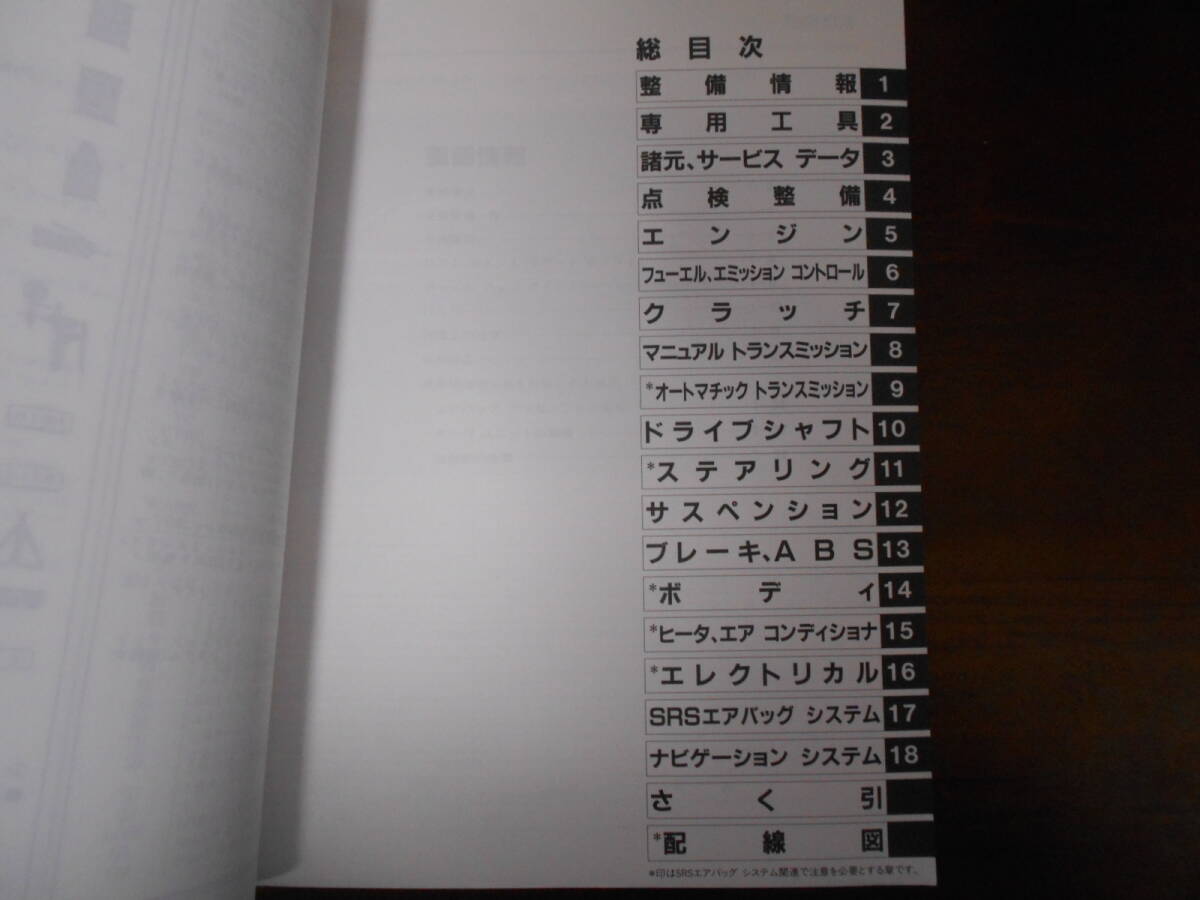 総目次
整備情報 1
専用工具 2
諸元、サービス データ 3
点検整備 4
エンジン 5
フューエル、エミッション コントロール 6
クラッチ 7
マニュアル トランスミッション 8
*オートマチック トランスミッション 9
ドライブシャフト 10
*ステアリング 11
サスペンション 12
ブレーキ、ABS 13
*ボディ 14
*ヒータ、エア コンディショナ 15
*エレクトリカル 16
SRSエアバッグ システム 17
ナビゲーション システム 18
さく引
*配線図
*印はSRSエアバッグ システム関連で注意を必要とする章です。